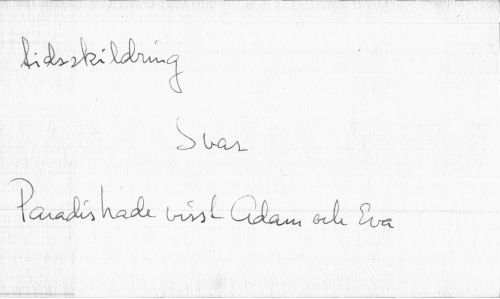 tidsskildring
Svar
Paradis hade visst Adam och Eva